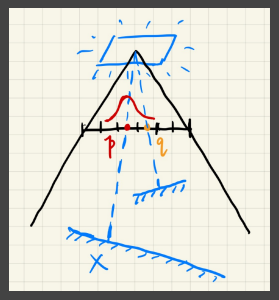 p q
X